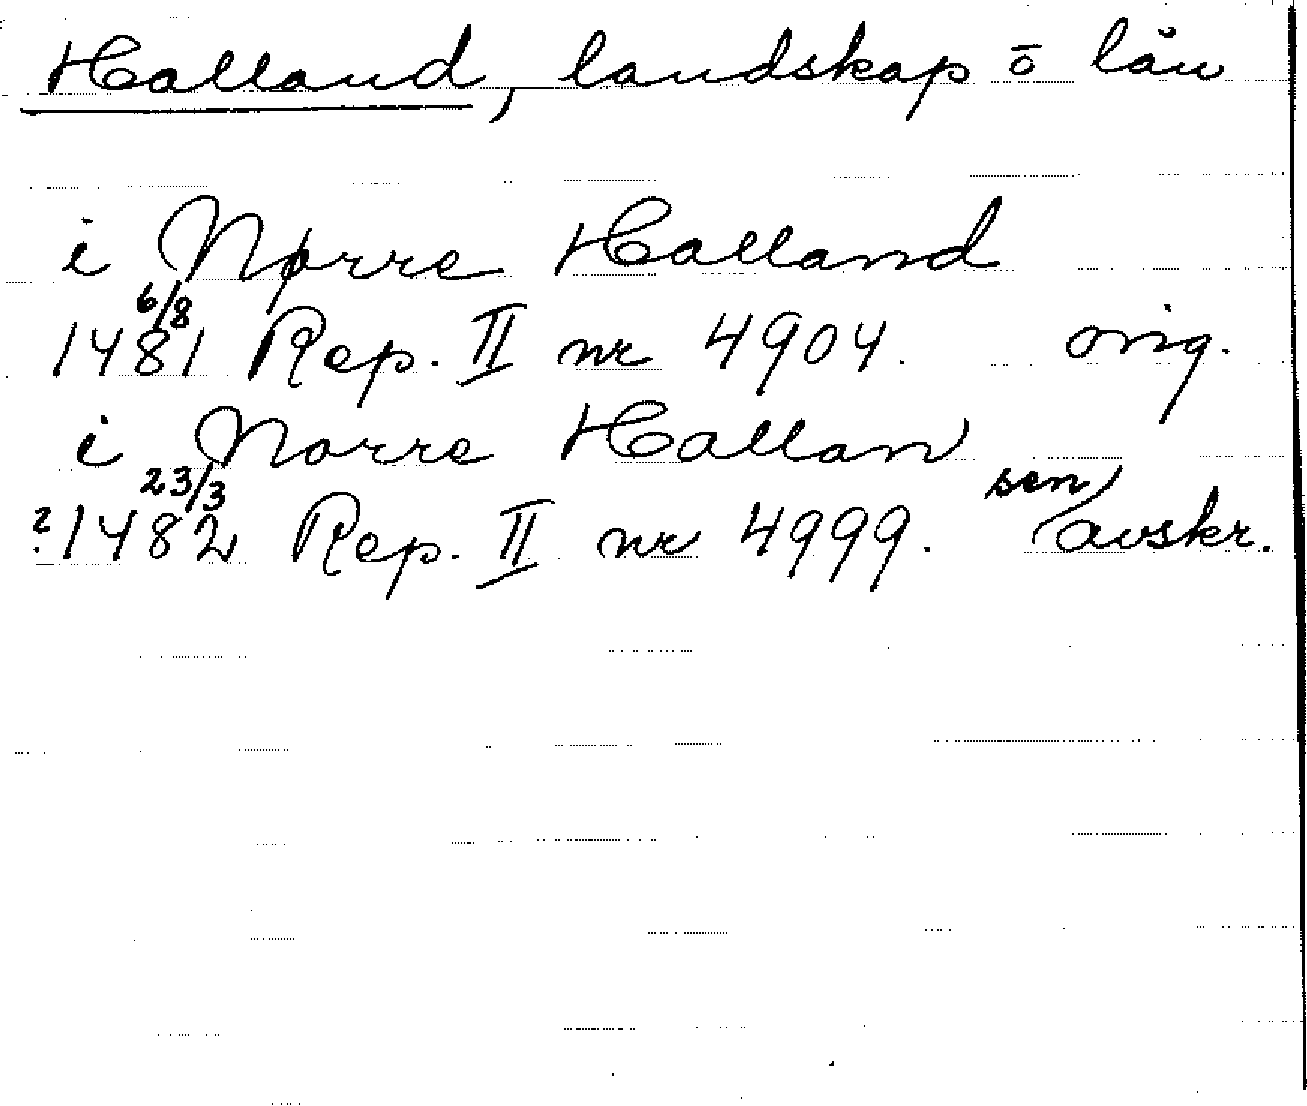 Halland, landskap o län
i Nørre Halland
6/8
1481 Rep. II nr 4904. orig.
i Norre Hallan
23/3 sen
?1482 Rep. II nr 4999. avskr.